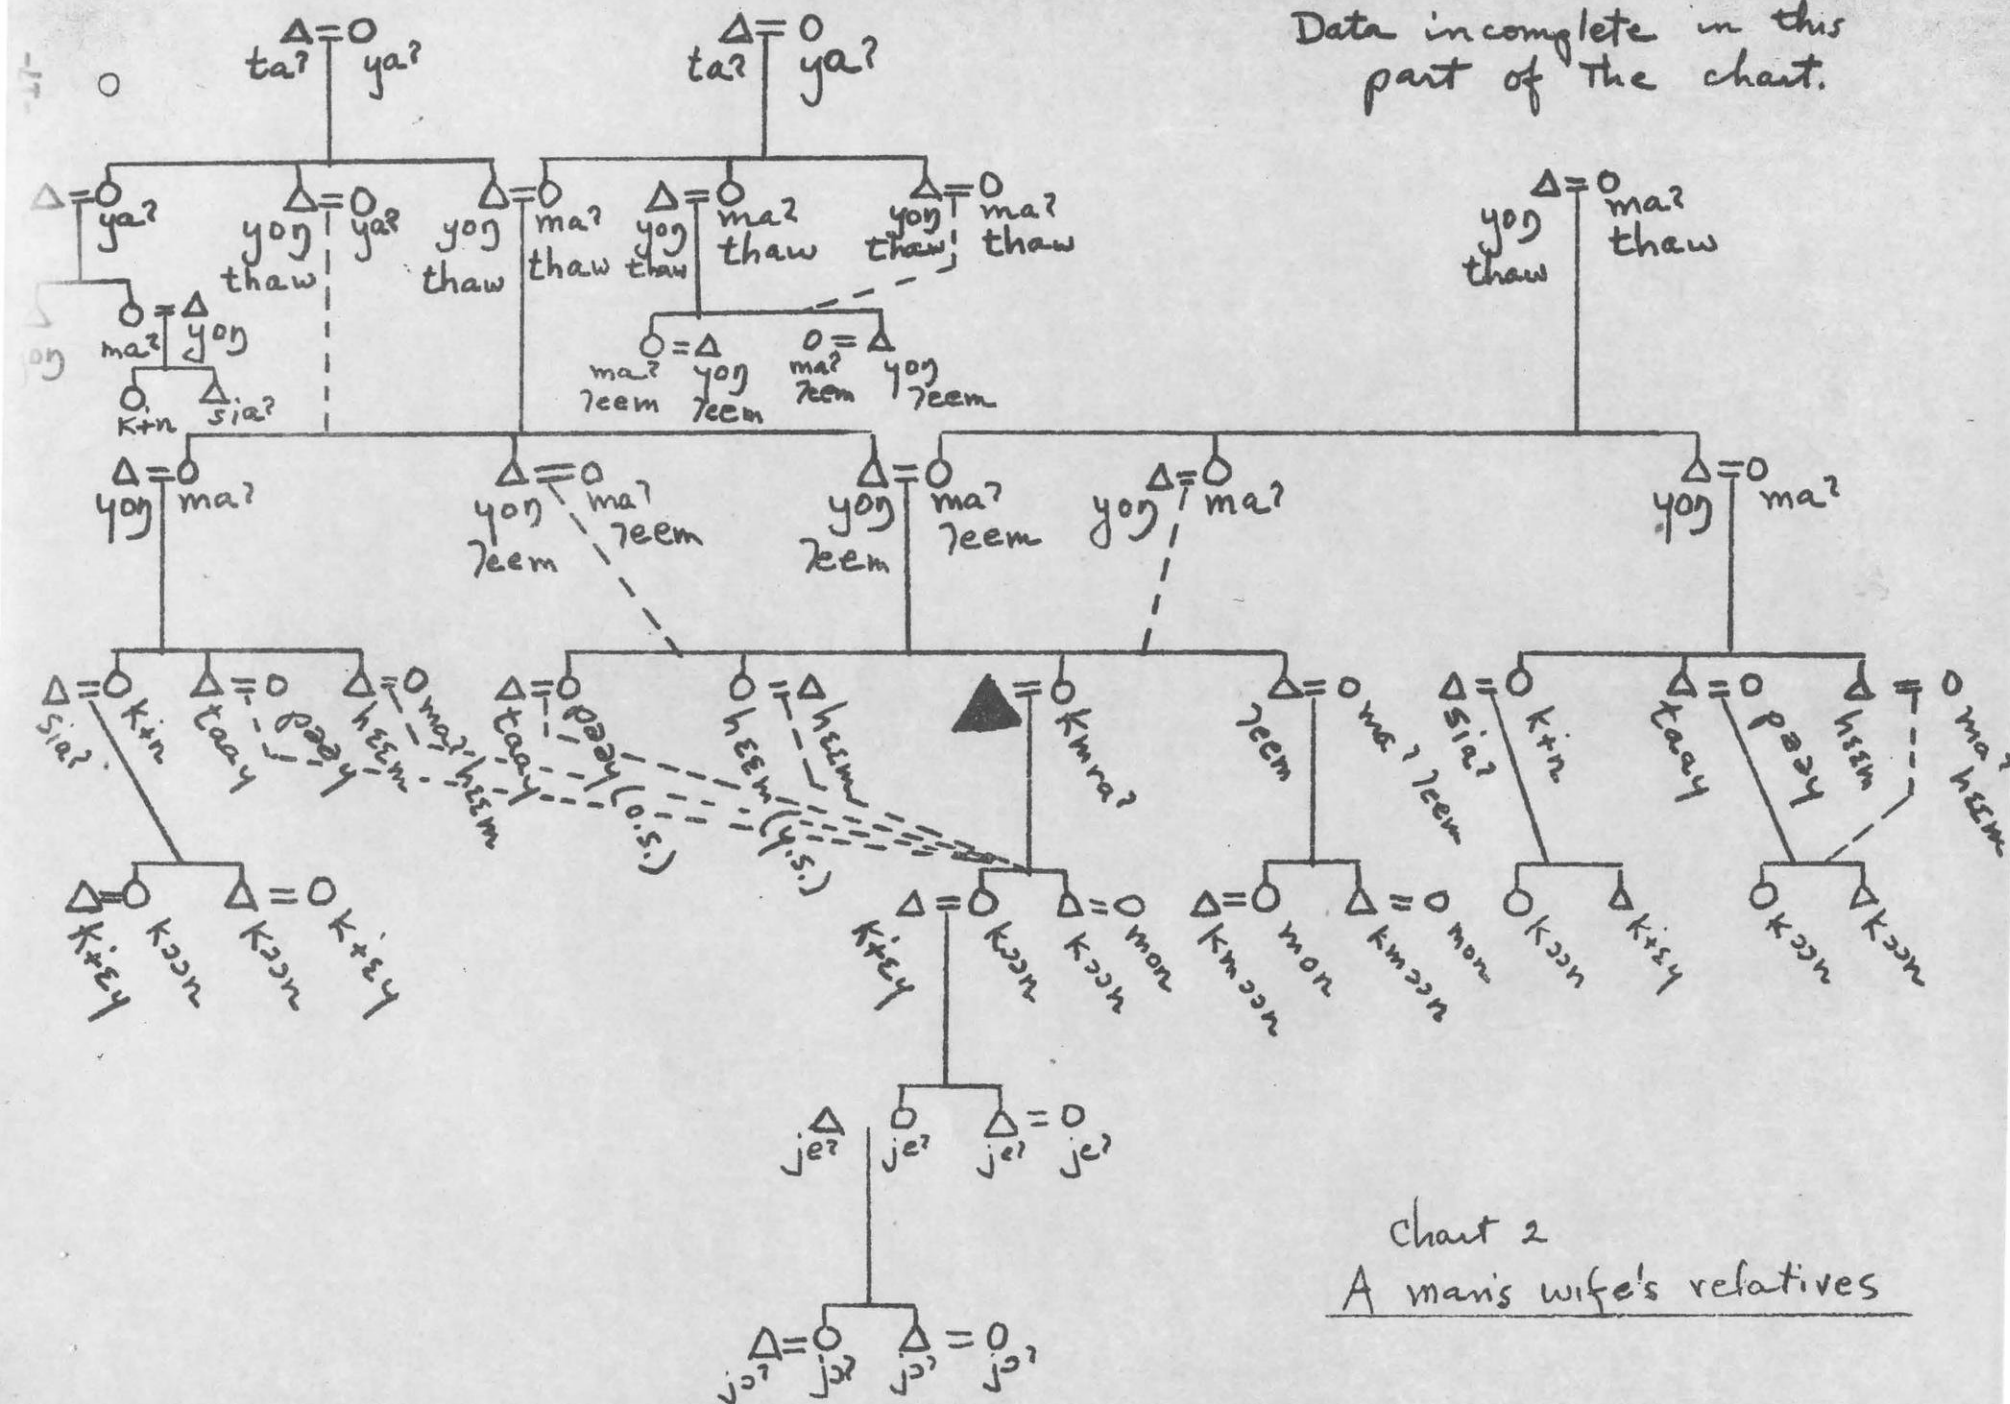 Data incomplete in this
part of the chart.
ta? ya? ta? ya?
ya? yoŋ thaw ya? yoŋ thaw ma? thaw yoŋ thaw ma? thaw yoŋ thaw ma? thaw yoŋ thaw ma? thaw
ma? yoŋ
ma? ʔeem yoŋ ʔeem ma? ʔeem yoŋ ʔeem
kɨn sia?
yoŋ ma? yoŋ ʔeem ma? ʔeem yoŋ ʔeem ma? ʔeem yoŋ ma? yoŋ ma?
sia? kɨn taay pəəy hɛɛm ma? hɛɛm taay pəəy (o.s.) hɛɛm (y.s.) hɛɛm kmra? ʔeem ma? ʔeem sia? kɨn taay pəəy hɛɛm ma? hɛɛm
kɨɛy kɔɔn kɔɔn kɨɛy kɨɛy kɔɔn kɔɔn mon kmɔɔn mon kmɔɔn mon kɔɔn kɨɛy kɔɔn kɔɔn
je? je? je? je?
jɔ? jɔ? jɔ? jɔ?
Chart 2
A man's wife's relatives